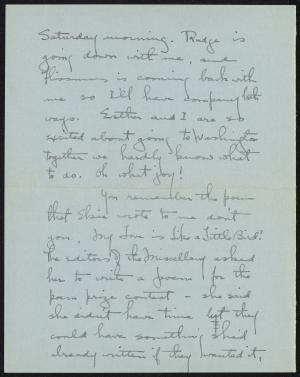 Saturday morning. Rudge is
going down with me, and
is coming back with
me so I'll have company both
ways. Esther and I are so
excited about going to Washington
together we hardly know what
to do. Oh what joy!
You remember the poem
that Elsie wrote to me don't
you, "My Love is Like a Little Bird."
The editors of the Miscellany asked
her to write a poem for the
poem prize contest - she said
she didn't have time but they
could have something she'd
already written if they wanted it,